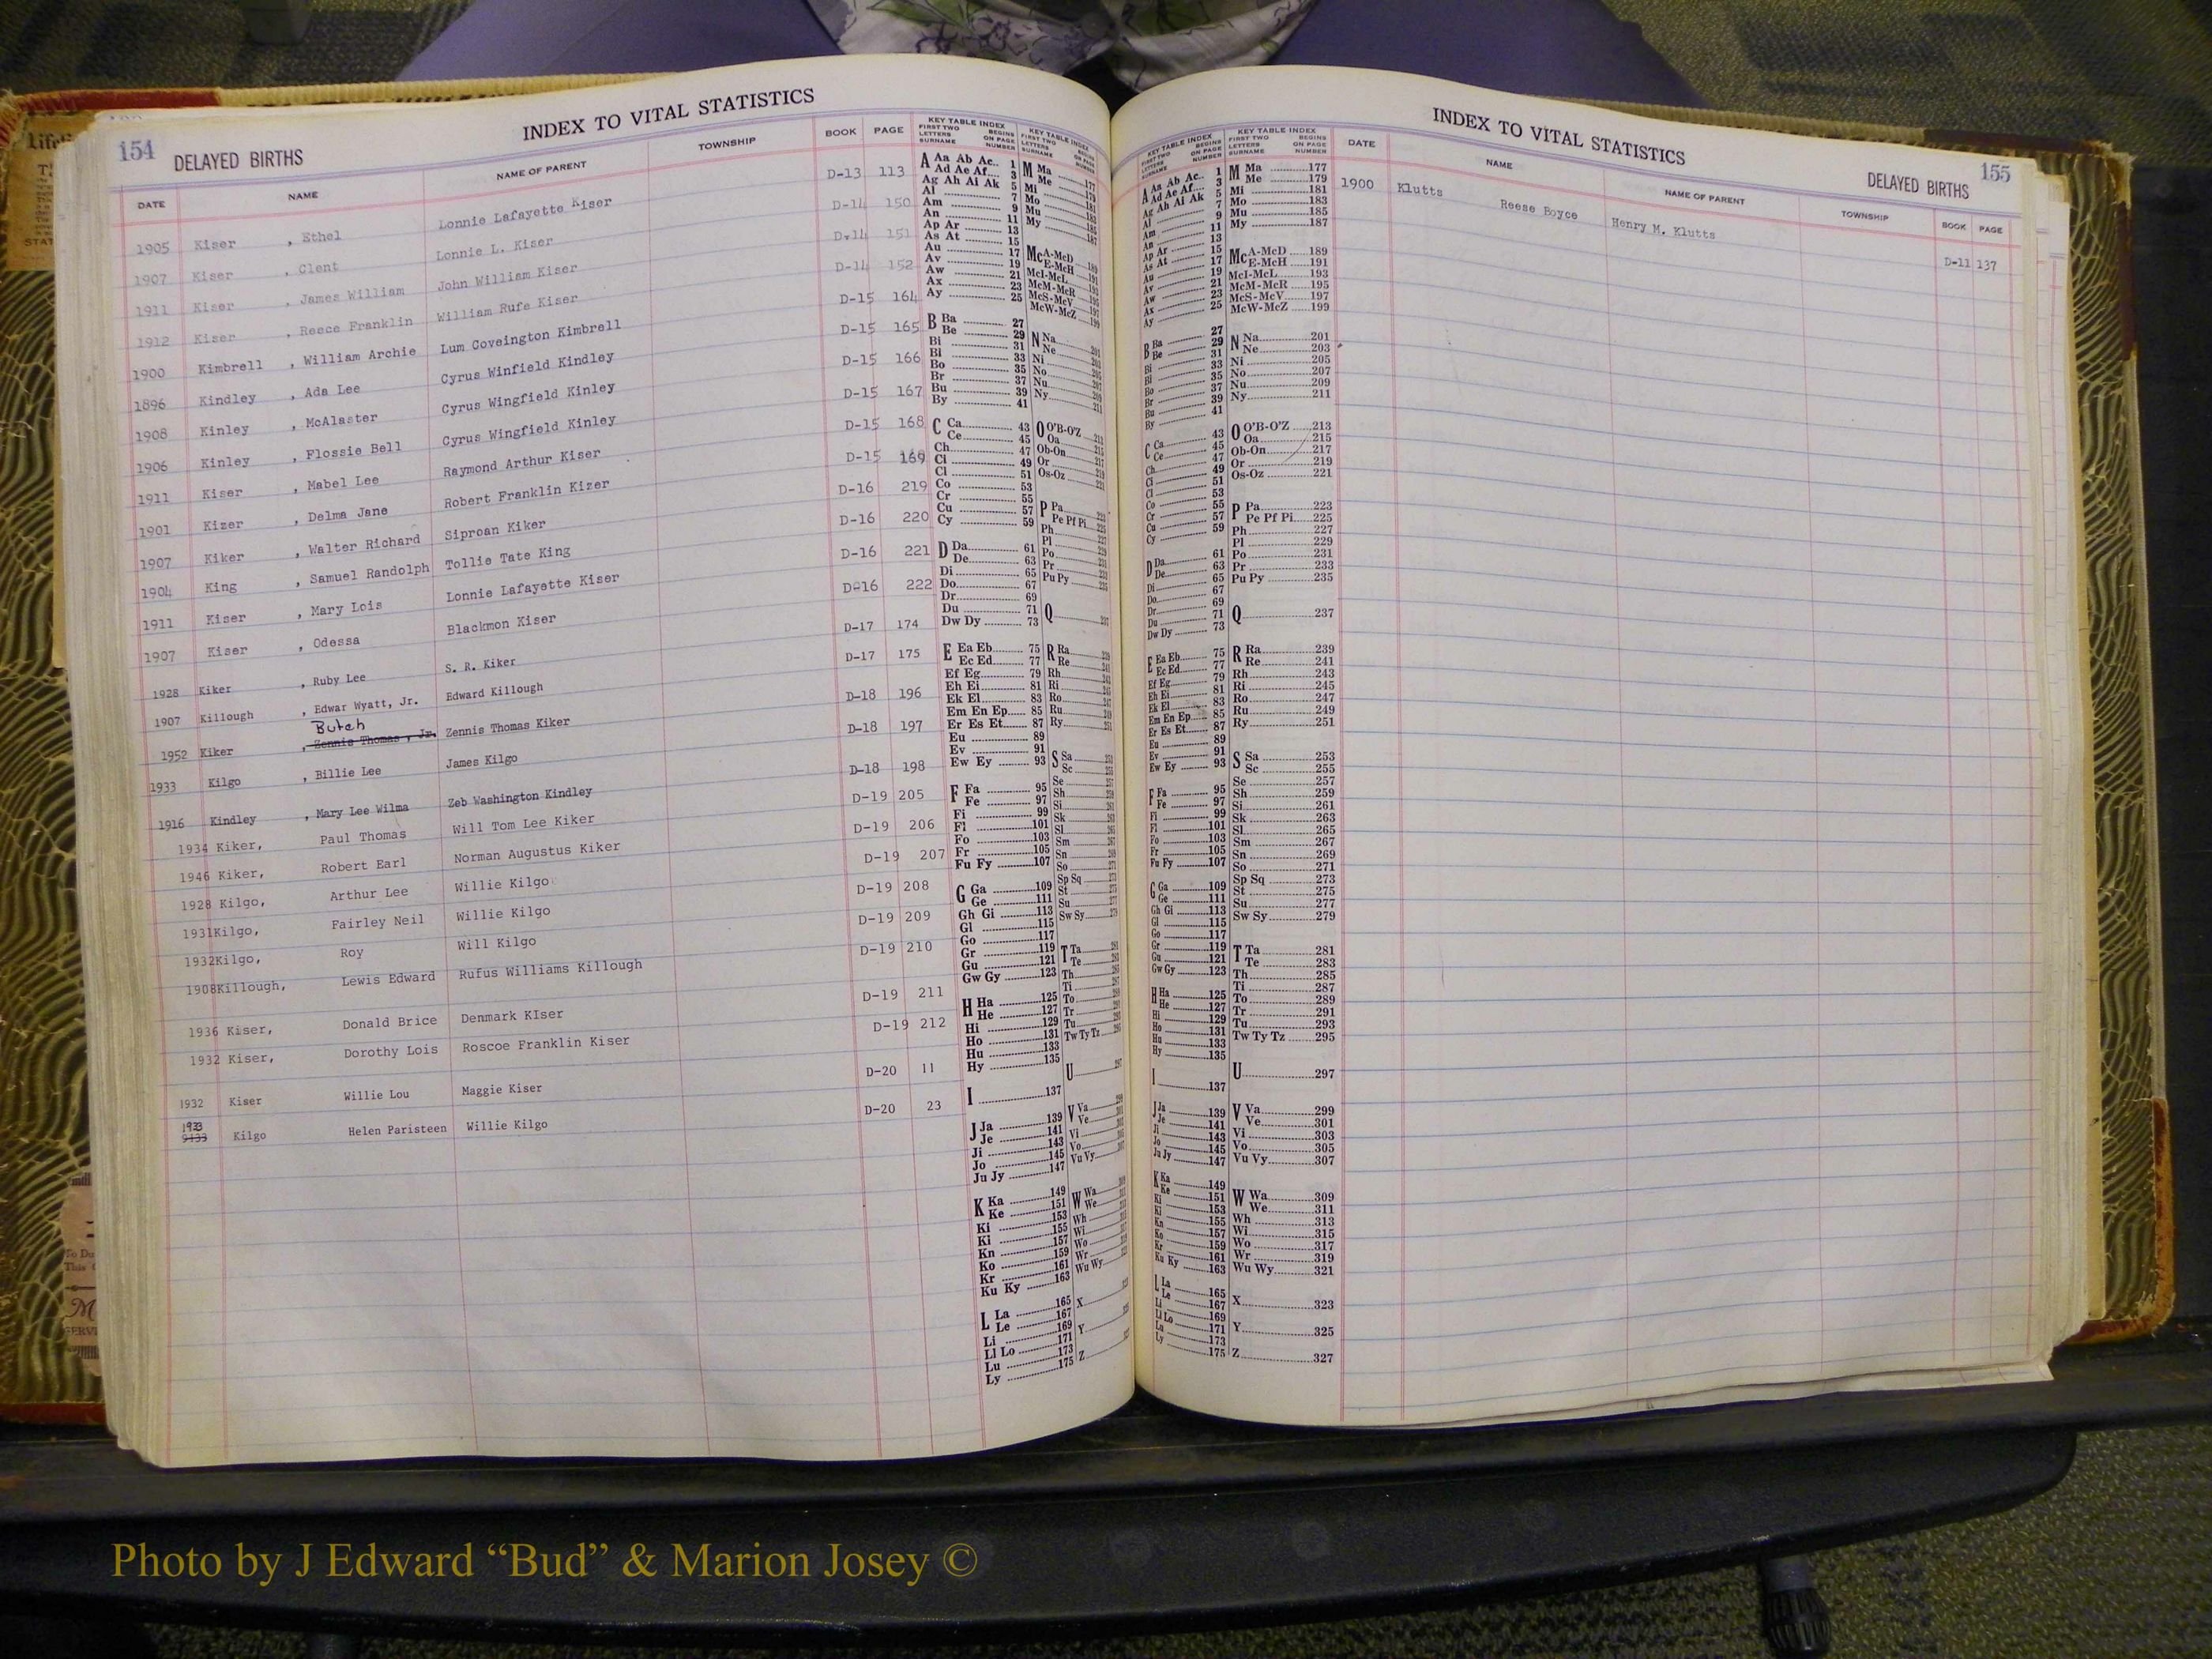 154
INDEX TO VITAL STATISTICS
DELAYED BIRTHS
DATE NAME NAME OF PARENT TOWNSHIP BOOK PAGE
1905 Kiser , Ethel Lonnie Lafayette Kiser D-13 113
1907 Kiser , Clent Lonnie L. Kiser D-14 150
1911 Kiser , James William John William Kiser D-14 151
1912 Kiser , Reece Franklin William Rufe Kiser D-14 152
1900 Kimbrell , William Archie Lum Coveington Kimbrell D-15 164
1896 Kindley , Ada Lee Cyrus Winfield Kindley D-15 165
1908 Kinley , McAlaster Cyrus Wingfield Kinley D-15 166
1906 Kinley , Flossie Bell Cyrus Wingfield Kinley D-15 167
1911 Kiser , Mabel Lee Raymond Arthur Kiser D-15 168
1901 Kizer , Delma Jane Robert Franklin Kizer D-15 169
1907 Kiker , Walter Richard Siproan Kiker D-16 219
1904 King , Samuel Randolph Tollie Tate King D-16 220
1911 Kiser , Mary Lois Lonnie Lafayette Kiser D-16 221
1907 Kiser , Odessa Blackmon Kiser D-16 222
1928 Kiker , Ruby Lee S. R. Kiker D-17 174
1907 Killough , Edwar Wyatt, Jr. Edward Killough D-17 175
Butch
1952 Kiker , Zennis Thomas, Jr. Zennis Thomas Kiker D-18 196
1933 Kilgo , Billie Lee James Kilgo D-18 197
1916 Kindley , Mary Lee Wilma Zeb Washington Kindley D-18 198
1934 Kiker, Paul Thomas Will Tom Lee Kiker D-19 205
1946 Kiker, Robert Earl Norman Augustus Kiker D-19 206
1928 Kilgo, Arthur Lee Willie Kilgo D-19 207
1931Kilgo, Fairley Neil Willie Kilgo D-19 208
1932Kilgo, Roy Will Kilgo D-19 209
1908Killough, Lewis Edward Rufus Williams Killough D-19 210
1936 Kiser, Donald Brice Denmark KIser D-19 211
1932 Kiser, Dorothy Lois Roscoe Franklin Kiser D-19 212
1932 Kiser Willie Lou Maggie Kiser D-20 11
1933
9133 Kilgo Helen Paristeen Willie Kilgo D-20 23
KEY TABLE INDEX
FIRST TWO LETTERS SURNAME BEGINS ON PAGE NUMBER
A Aa Ab Ac.. 1
Ad Ae Af.... 3
Ag Ah Ai Ak 5
Al 7
Am 9
An 11
Ap Ar 13
As At 15
Au 17
Av 19
Aw 21
Ax 23
Ay 25
B Ba 27
Be 29
Bi 31
Bl 33
Bo 35
Br 37
Bu 39
By 41
C Ca 43
Ce 45
Ch 47
Ci 49
Cl 51
Co 53
Cr 55
Cu 57
Cy 59
D Da 61
De 63
Di 65
Do 67
Dr 69
Du 71
Dw Dy 73
E Ea Eb 75
Ec Ed 77
Ef Eg 79
Eh Ei 81
Ek El 83
Em En Ep 85
Er Es Et 87
Eu 89
Ev 91
Ew Ey 93
F Fa 95
Fe 97
Fi 99
Fl 101
Fo 103
Fr 105
Fu Fy 107
G Ga 109
Ge 111
Gh Gi 113
Gl 115
Go 117
Gr 119
Gu 121
Gw Gy 123
H Ha 125
He 127
Hi 129
Ho 131
Hu 133
Hy 135
I 137
J Ja 139
Je 141
Ji 143
Jo 145
Ju Jy 147
K Ka 149
Ke 151
Ki 153
Ki 155
Kn 157
Ko 159
Kr 161
Ku Ky 163
L La 165
Le 167
Li 169
Ll Lo 171
Lu 173
Ly 175
155
INDEX TO VITAL STATISTICS
DELAYED BIRTHS
KEY TABLE INDEX
FIRST TWO LETTERS SURNAME BEGINS ON PAGE NUMBER
M Ma 177
Me 179
Mi 181
Mo 183
Mu 185
My 187
Mc A-McD 189
E-McH 191
McI-McL 193
McM-McR 195
McS-McV 197
McW-McZ 199
N Na 201
Ne 203
Ni 205
No 207
Nu 209
Ny 211
O O'B-O'Z 213
Oa 215
Ob-On 217
Or 219
Os-Oz 221
P Pa 223
Pe Pf Pi 225
Ph 227
Pl 229
Po 231
Pr 233
Pu Py 235
Q 237
R Ra 239
Re 241
Rh 243
Ri 245
Ro 247
Ru 249
Ry 251
S Sa 253
Sc 255
Se 257
Sh 259
Si 261
Sk 263
Sl 265
Sm 267
Sn 269
So 271
Sp Sq 273
St 275
Su 277
Sw Sy 279
T Ta 281
Te 283
Th 285
Ti 287
To 289
Tr 291
Tu 293
Tw Ty Tz 295
U 297
V Va 299
Ve 301
Vi 303
Vo 305
Vu Vy 307
W Wa 309
We 311
Wh 313
Wi 315
Wo 317
Wr 319
Wu Wy 321
X 323
Y 325
Z 327
DATE NAME NAME OF PARENT TOWNSHIP BOOK PAGE
1900 Klutts Reese Boyce Henry M. Klutts D-11 137
Photo by J Edward “Bud” & Marion Josey ©